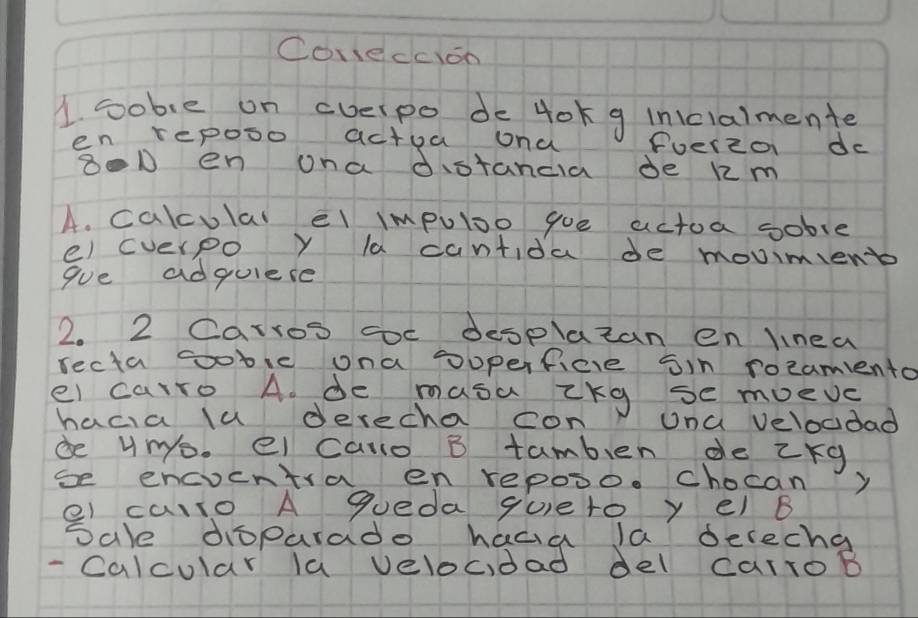 Corrección
1. Sobre un cuerpo de 40kg inicialmente
en reposo actua una fuerza de
80N en una distancia de 12m
A. Calcular el impulso que actua sobre
el cuerpo y la cantida de movimiento
que adquiere
2. 2 Carros se desplazan en linea
recta sobre una superficie sin rozamiento
el carro A. de masa 2kg se mueve
hacia la derecha con una velocidad
de 4m/s. el carro B tambien de 2kg
se encuentra en reposo. chocan y
el carro A queda quieto y el B
sale disparado hacia la derecha
- Calcular la velocidad del carro B